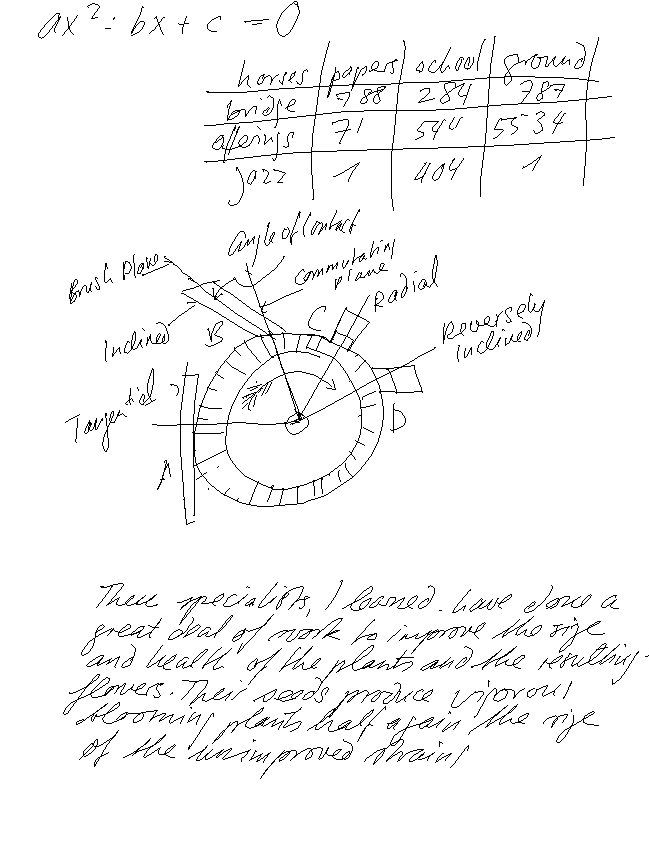 ax² - bx + c = 0
horses papers school ground
bridge 788 284 787
offerings 71 544 5534
jazz 1 404 1
Angle of Contact
Brush Plane
Commutating
plane
Inclined
B
C
Radial
Reversely
Inclined
Tangential
D
A
These specialists, I learned, have done a
great deal of work to improve the size
and health of the plants and the resulting
flowers. Their seeds produce vigorous
blooming plants half again the size
of the unimproved strains